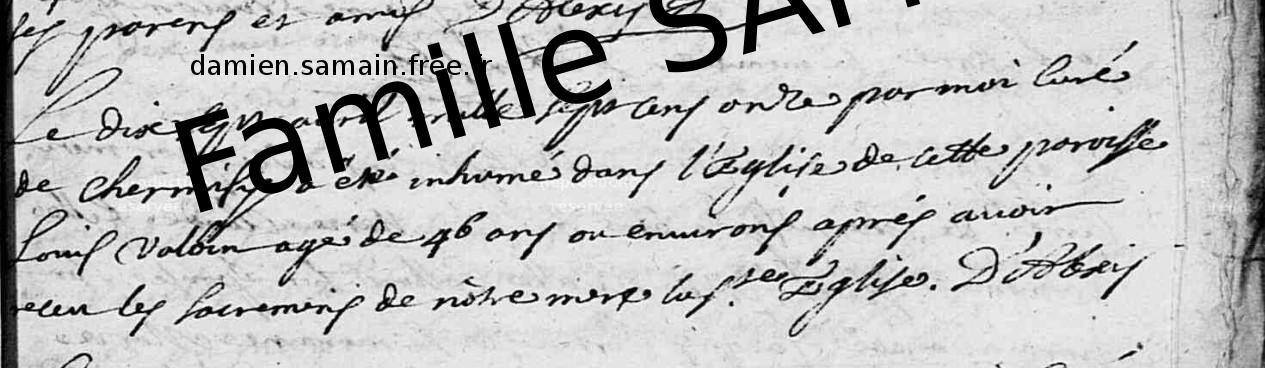 ses parens et amis D'Alexis
Famille SAM
damien.samain.free.fr
Le dix sept avril mille sept cens onze par moi Curé
de chermisy a été inhumé dans l'Eglise de cette paroisse
Louis Valbin agé de 46 ans ou environs aprés avoir
receu les sacremens de nôtre mere la s.te Eglise. D'Alexis